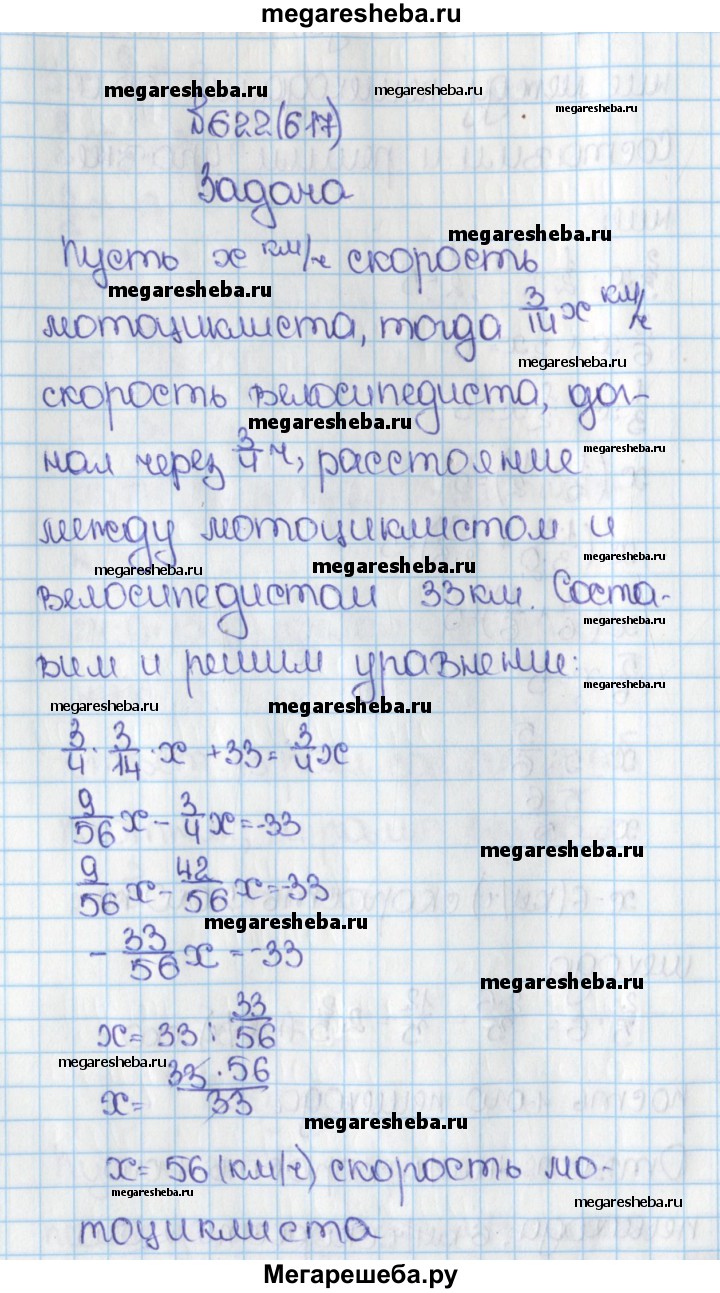 megaresheba.ru
megaresheba.ru megaresheba.ru megaresheba.ru
№622(617)
Задача
megaresheba.ru
Пусть x км/ч скорость
megaresheba.ru
мотоциклиста, тогда 3/14 x км/ч
megaresheba.ru
скорость велосипедиста, дог-
megaresheba.ru
нал через 3/4 ч, расстояние
megaresheba.ru
между мотоциклистом и
megaresheba.ru megaresheba.ru megaresheba.ru
велосипедистом 33 км. Соста-
megaresheba.ru
вим и решим уравнение:
megaresheba.ru
megaresheba.ru megaresheba.ru
3/4 · 3/14 · x + 33 = 3/4 x
9/56 x - 3/4 x = -33
megaresheba.ru
9/56 x - 42/56 x = -33
megaresheba.ru
- 33/56 x = -33
megaresheba.ru
x = 33 : 33/56
megaresheba.ru
x = 33 · 56/33
megaresheba.ru
x = 56 (км/ч) скорость мо-
megaresheba.ru megaresheba.ru
тоциклиста
Мегарешеба.ру